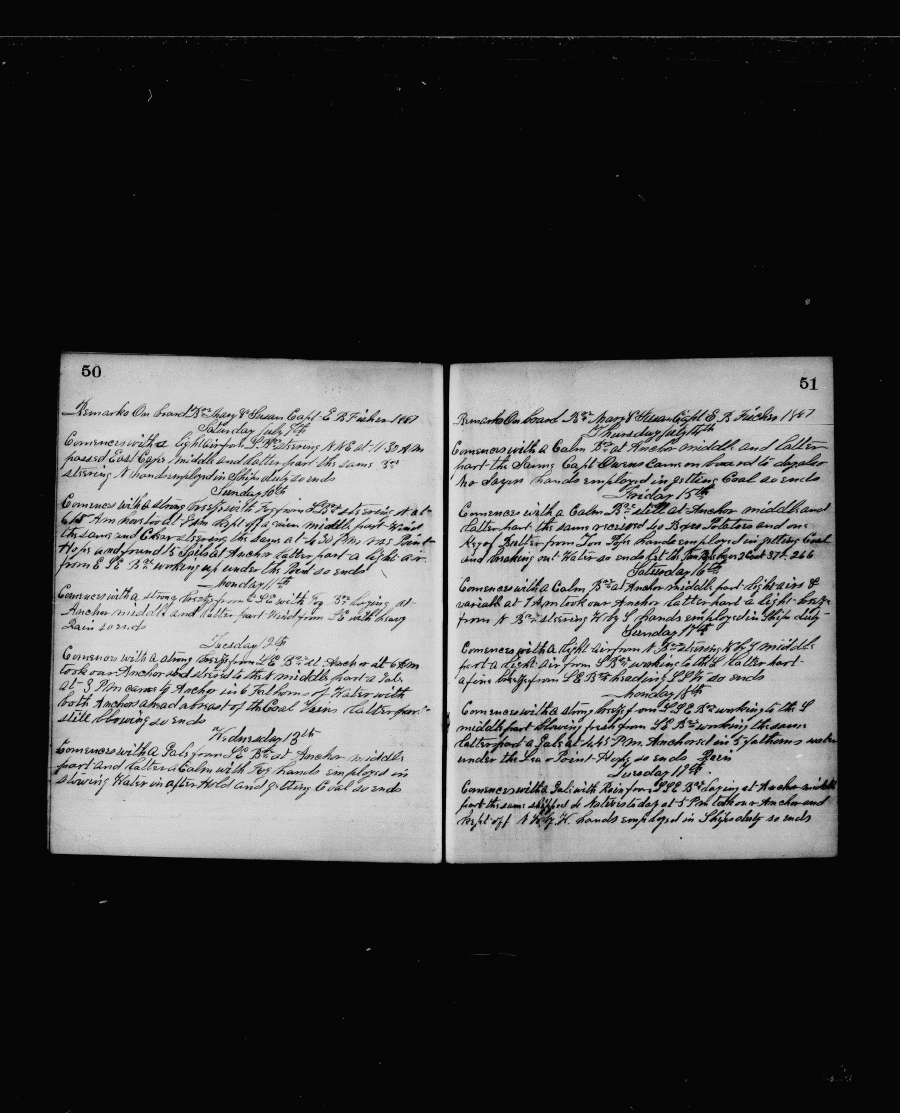 50
Remarks On board Bn Mary & Susan Capt E B Fisher 1887
Saturday July 9th
Comences with a light air from S Bn steering N N E at 11-30 A m
passed East Cape middle and latter part the same Bn
steering N hands employed in Ships duty so ends
Sunday 10th
Comences with a strong breeze with Fog from S Bn steering N at
Am at Kept off middle part Wind
the same and Clear steering the same at 4-30 P m was Point
Hope and found 15 Sails at Anchor latter part a light air
from E S E Bn working up under the Point so ends
Monday 11th
Comences with a strong breeze from S E with Fog Bn laying at
Anchor middle and latter part Wind from S E with heavy
Rain so ends
Tuesday 12th
Comences with a strong breeze from S E Bn at Anchor at 6 A m
took our Anchor and steered to the N middle part a Gale
at 3 P m came to Anchor in 6 Fathoms of Water with
both Anchors ahead abreast of the Coal Veins latter part
still blowing so ends
Wednesday 13th
Comences with a Gale from S E Bn at Anchor middle
part and latter a Calm with Fog hands employed in
stowing Water in after Hold and getting Coal so ends
51
Remarks On board Bn Mary & Susan Capt E B Fisher 1887
Thursday July 14th
Comences with a Calm Bn at Anchor middle and latter
part the Same Capt Owens came on board to day also
hands employed in getting Coal so ends
Friday 15th
Comences with a Calm Bn still at Anchor middle and
latter part the same received 60 Potatoes and one
Keg of Butter from Ton hands employed in getting Coal
and breaking out Water so ends
Saturday 16th
Comences with a Calm Bn at Anchor middle part light airs &
variable at 7 A m took our Anchor latter part a light breeze
from N Bn steering W by S hands employed in Ships duty
Sunday 17th
Comences with a light air from N Bn steering W by S middle
part a light air from S Bn working to the S latter part
a fine breeze from S E Bn heading S S W so ends
Monday 18th
Comences with a strong breeze from S S E Bn working to the S
middle part blowing fresh from S E Bn working the same
latter part a Gale at 4.45 P m. Anchored in 5 fathoms water
under the Lea of Point Hope so ends Rain
Tuesday 19th
Comences with a Gale with Rain from S S E Bn laying at Anchor middle
part the same shipped to day at 5 P m took our Anchor and
Kept off N W by W. hands employed in Ships duty so ends